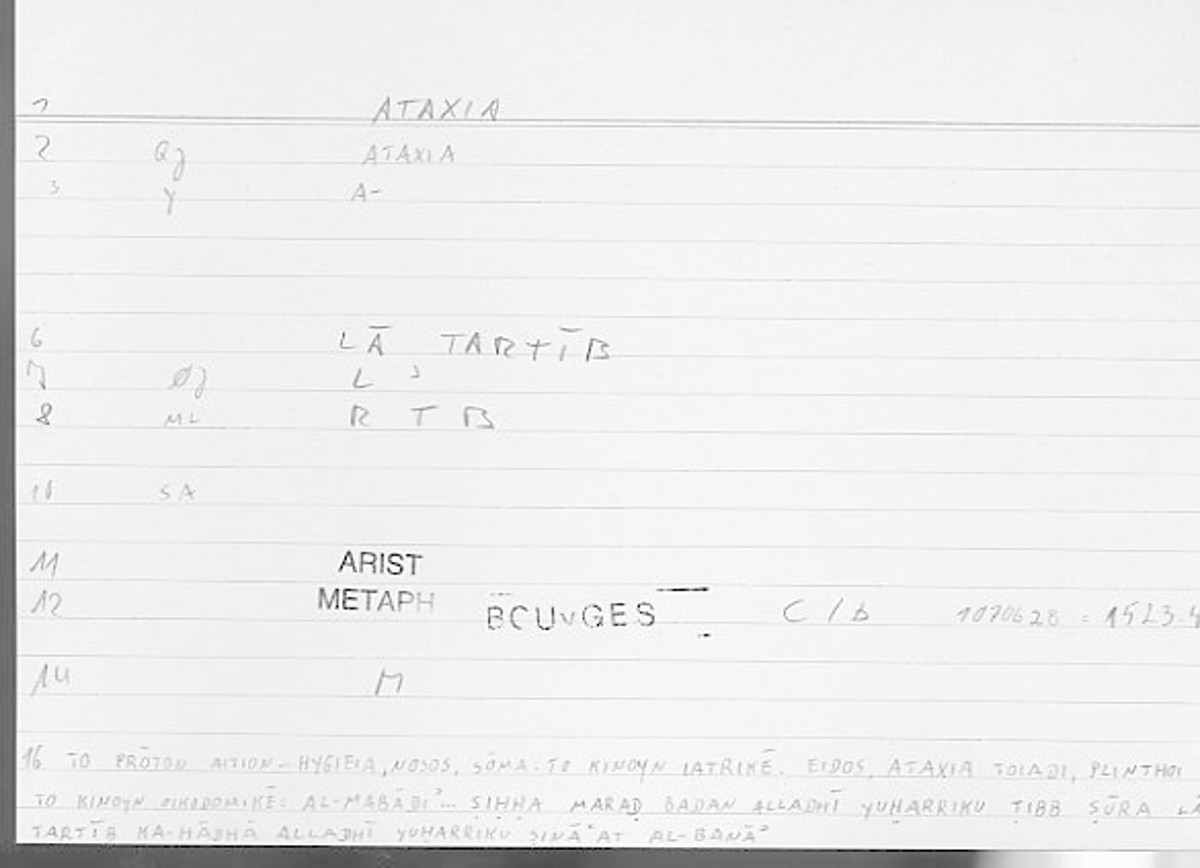 1 ATAXIA
2 QJ ATAXIA
3 Y A-
6 LĀ TARTĪB
7 ØJ L ʾ
8 ML R T B
10 SA
11 ARIST
12 METAPH BOUYGES C / b 1070b28 = 1523.4
14 M
16 TO PRŌTON AITION - HYGIEIA, NOSOS, SŌMA. TO KINOYN IATRIKĒ. EIDOS, ATAXIA TOIADI, PLINTHOI
TO KINOYN OIKODOMIKĒ: AL-MABĀDIʾ... ṢIḤḤA MARAḌ BADAN ALLADHĪ YUḤARRIKU ṬIBB ṢŪRA LĀ
TARTĪB KA-HĀDHĀ ALLADHĪ YUḤARRIKU ṢINĀʿAT AL-BANĀʾ